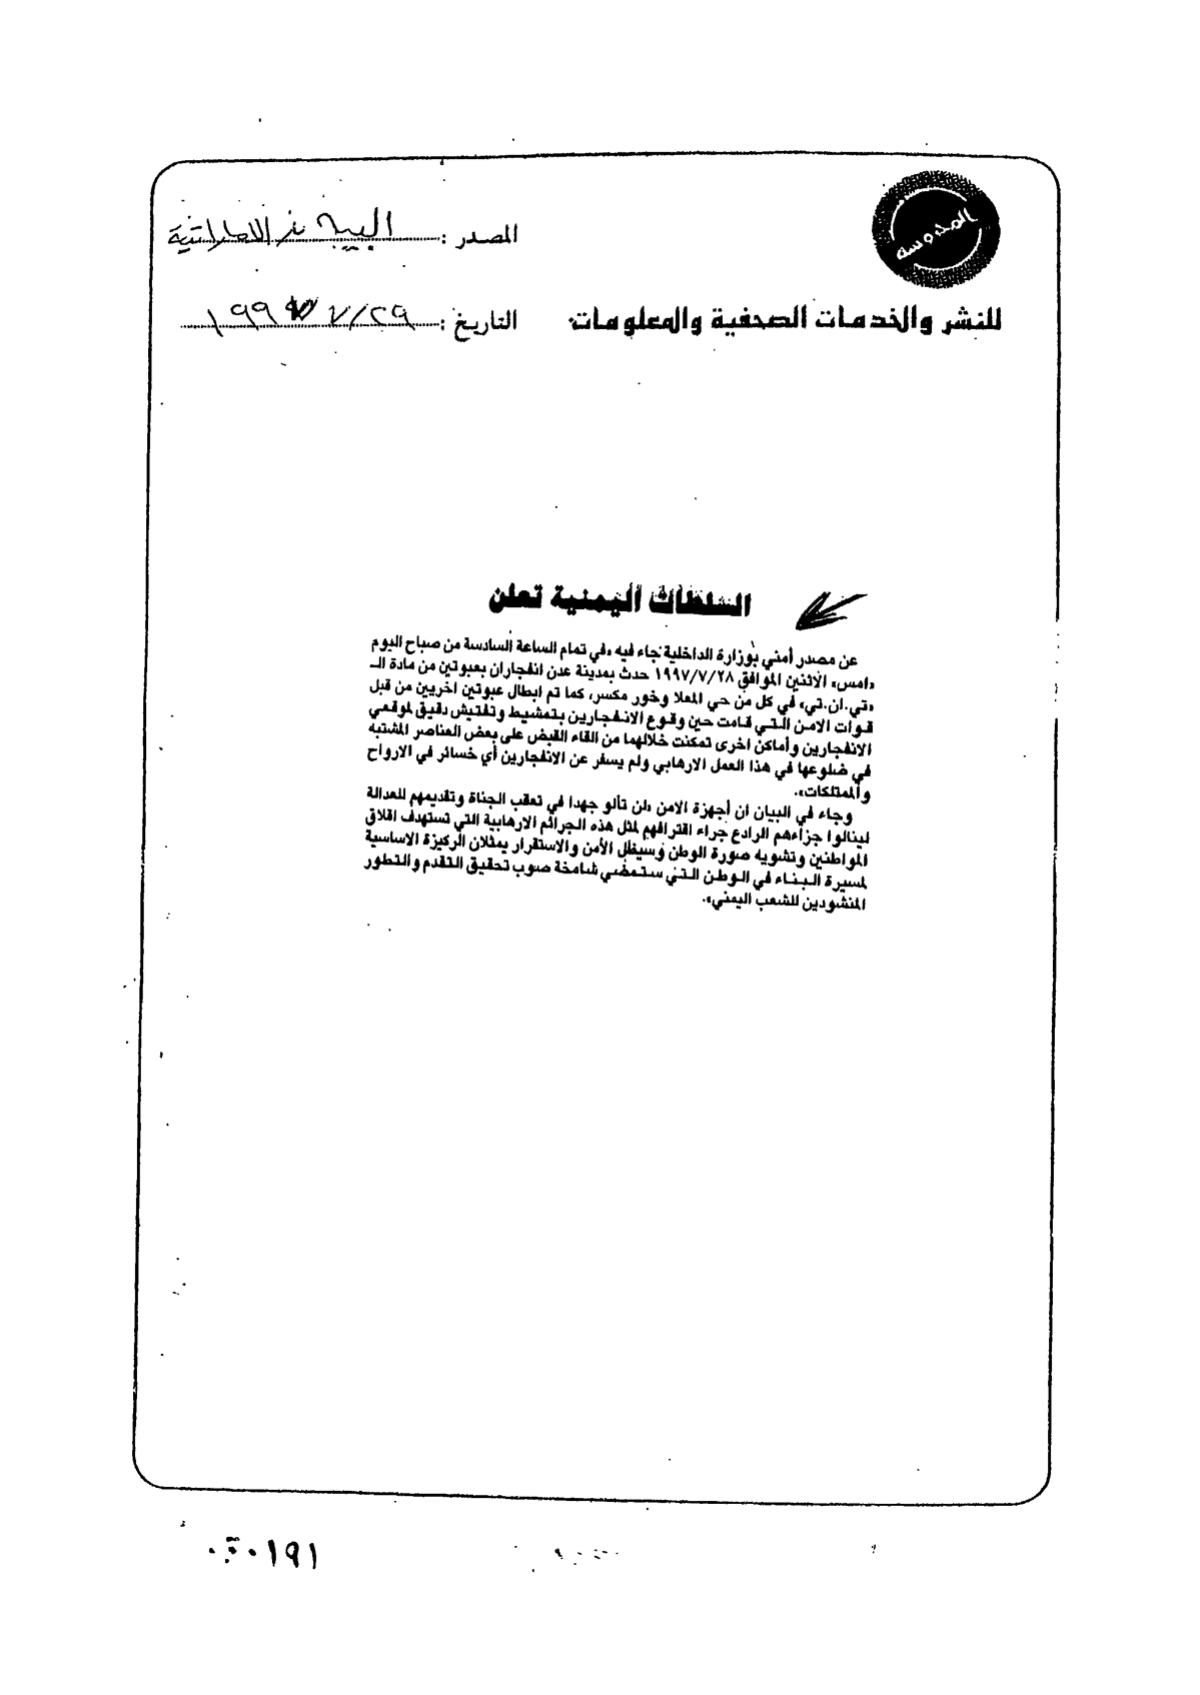 المحروسة
المصدر : البيان الاماراتية
للنشر والخدمات الصحفية والمعلومات
التاريخ : ٢٩/٧/١٩٩٧
السلطات اليمنية تعلن
عن مصدر أمني بوزارة الداخلية جاء فيه «في تمام الساعة السادسة من صباح اليوم
«امس» الاثنين الموافق ١٩٩٧/٧/٢٨ حدث بمدينة عدن انفجاران بعبوتين من مادة الـ
«تي.ان.تي» في كل من حي المعلا وخور مكسر، كما تم ابطال عبوتين اخريين من قبل
قوات الامن التي قامت حين وقوع الانفجارين بتمشيط وتفتيش دقيق لموقعي
الانفجارين وأماكن اخرى تمكنت خلالهما من القاء القبض على بعض العناصر المشتبه
في ضلوعها في هذا العمل الارهابي ولم يسفر عن الانفجارين أي خسائر في الارواح
والممتلكات».
وجاء في البيان ان أجهزة الامن «لن تألو جهدا في تعقب الجناة وتقديمهم للعدالة
لينالوا جزاءهم الرادع جراء اقترافهم لمثل هذه الجرائم الارهابية التي تستهدف اقلاق
المواطنين وتشويه صورة الوطن وسيظل الأمن والاستقرار يمثلان الركيزة الاساسية
لمسيرة البناء في الوطن التي ستمضي شامخة صوب تحقيق التقدم والتطور
المنشودين للشعب اليمني».